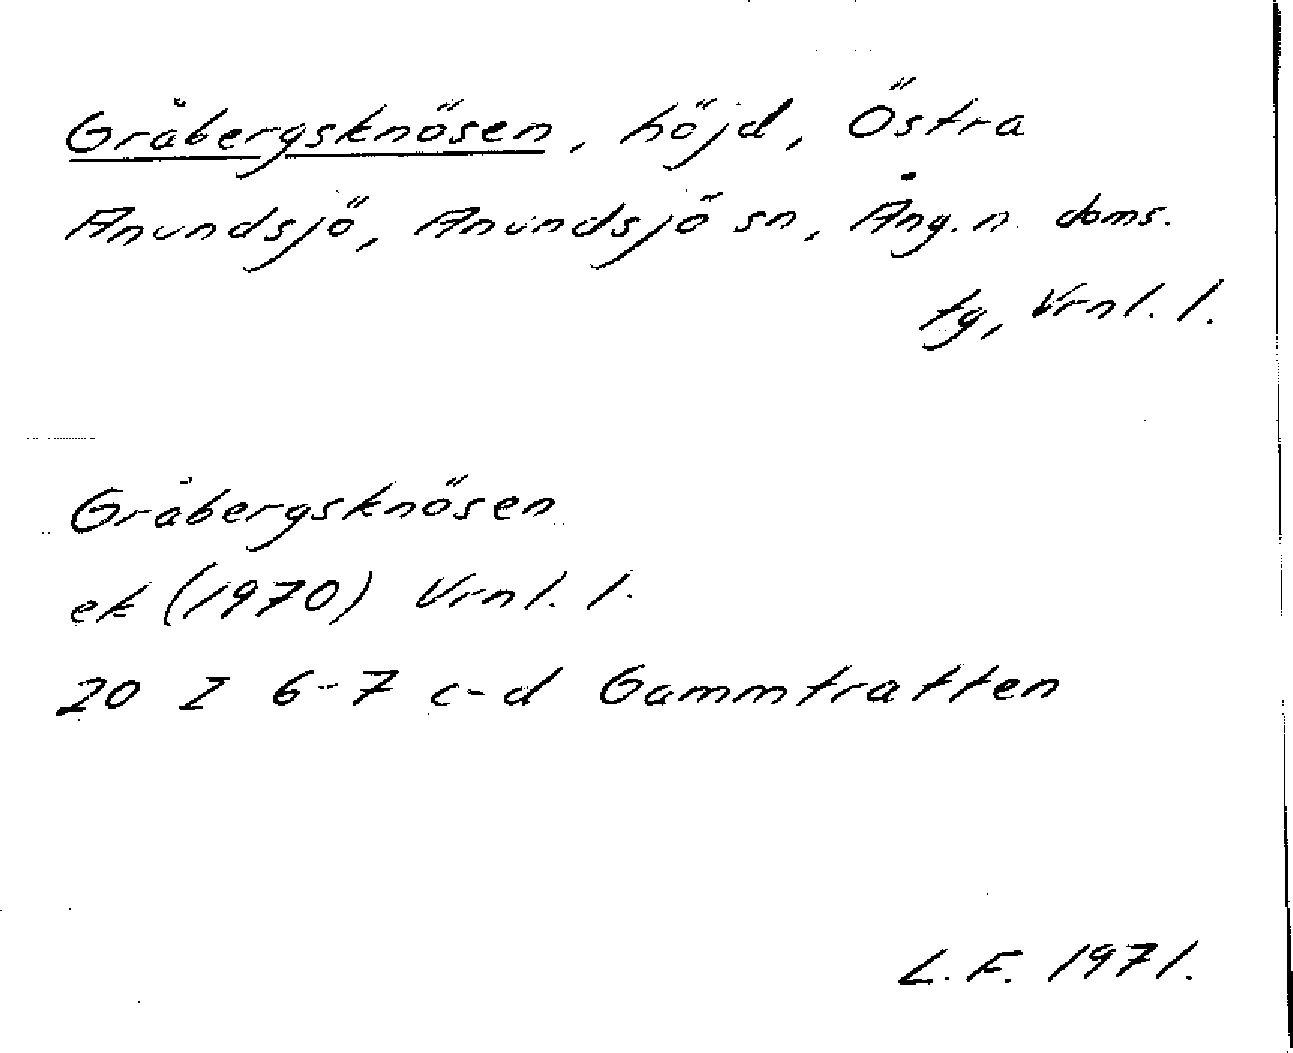 Gråbergsknösen, höjd, Östra
Anundsjö, Anundsjö sn, Ång. n. doms.
tg, Vrnl. l.
Gråbergsknösen
ek (1970) Vrnl. l.
20 I 6-7 c-d Gammtratten
L.F. 1971.